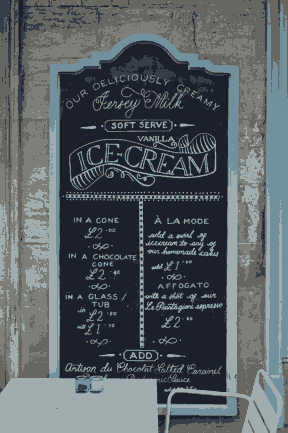 OUR DELICIOUSLY CREAMY
Jersey Milk
SOFT SERVE
VANILLA
ICE-CREAM
IN A CONE
£2
IN A CHOCOLATE
CONE
£2
IN A GLASS /
TUB
£2
£1
À LA MODE
add a swirl of
icecream to any of
our homemade cakes
add £1
AFFOGATO
with a shot of our
espresso
£2
ADD
Artisan du Chocolat Salted Caramel
Sauce